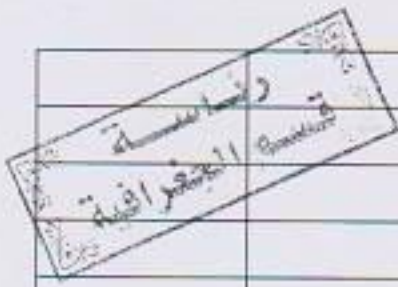 رئاسة
قسم الجغرافية